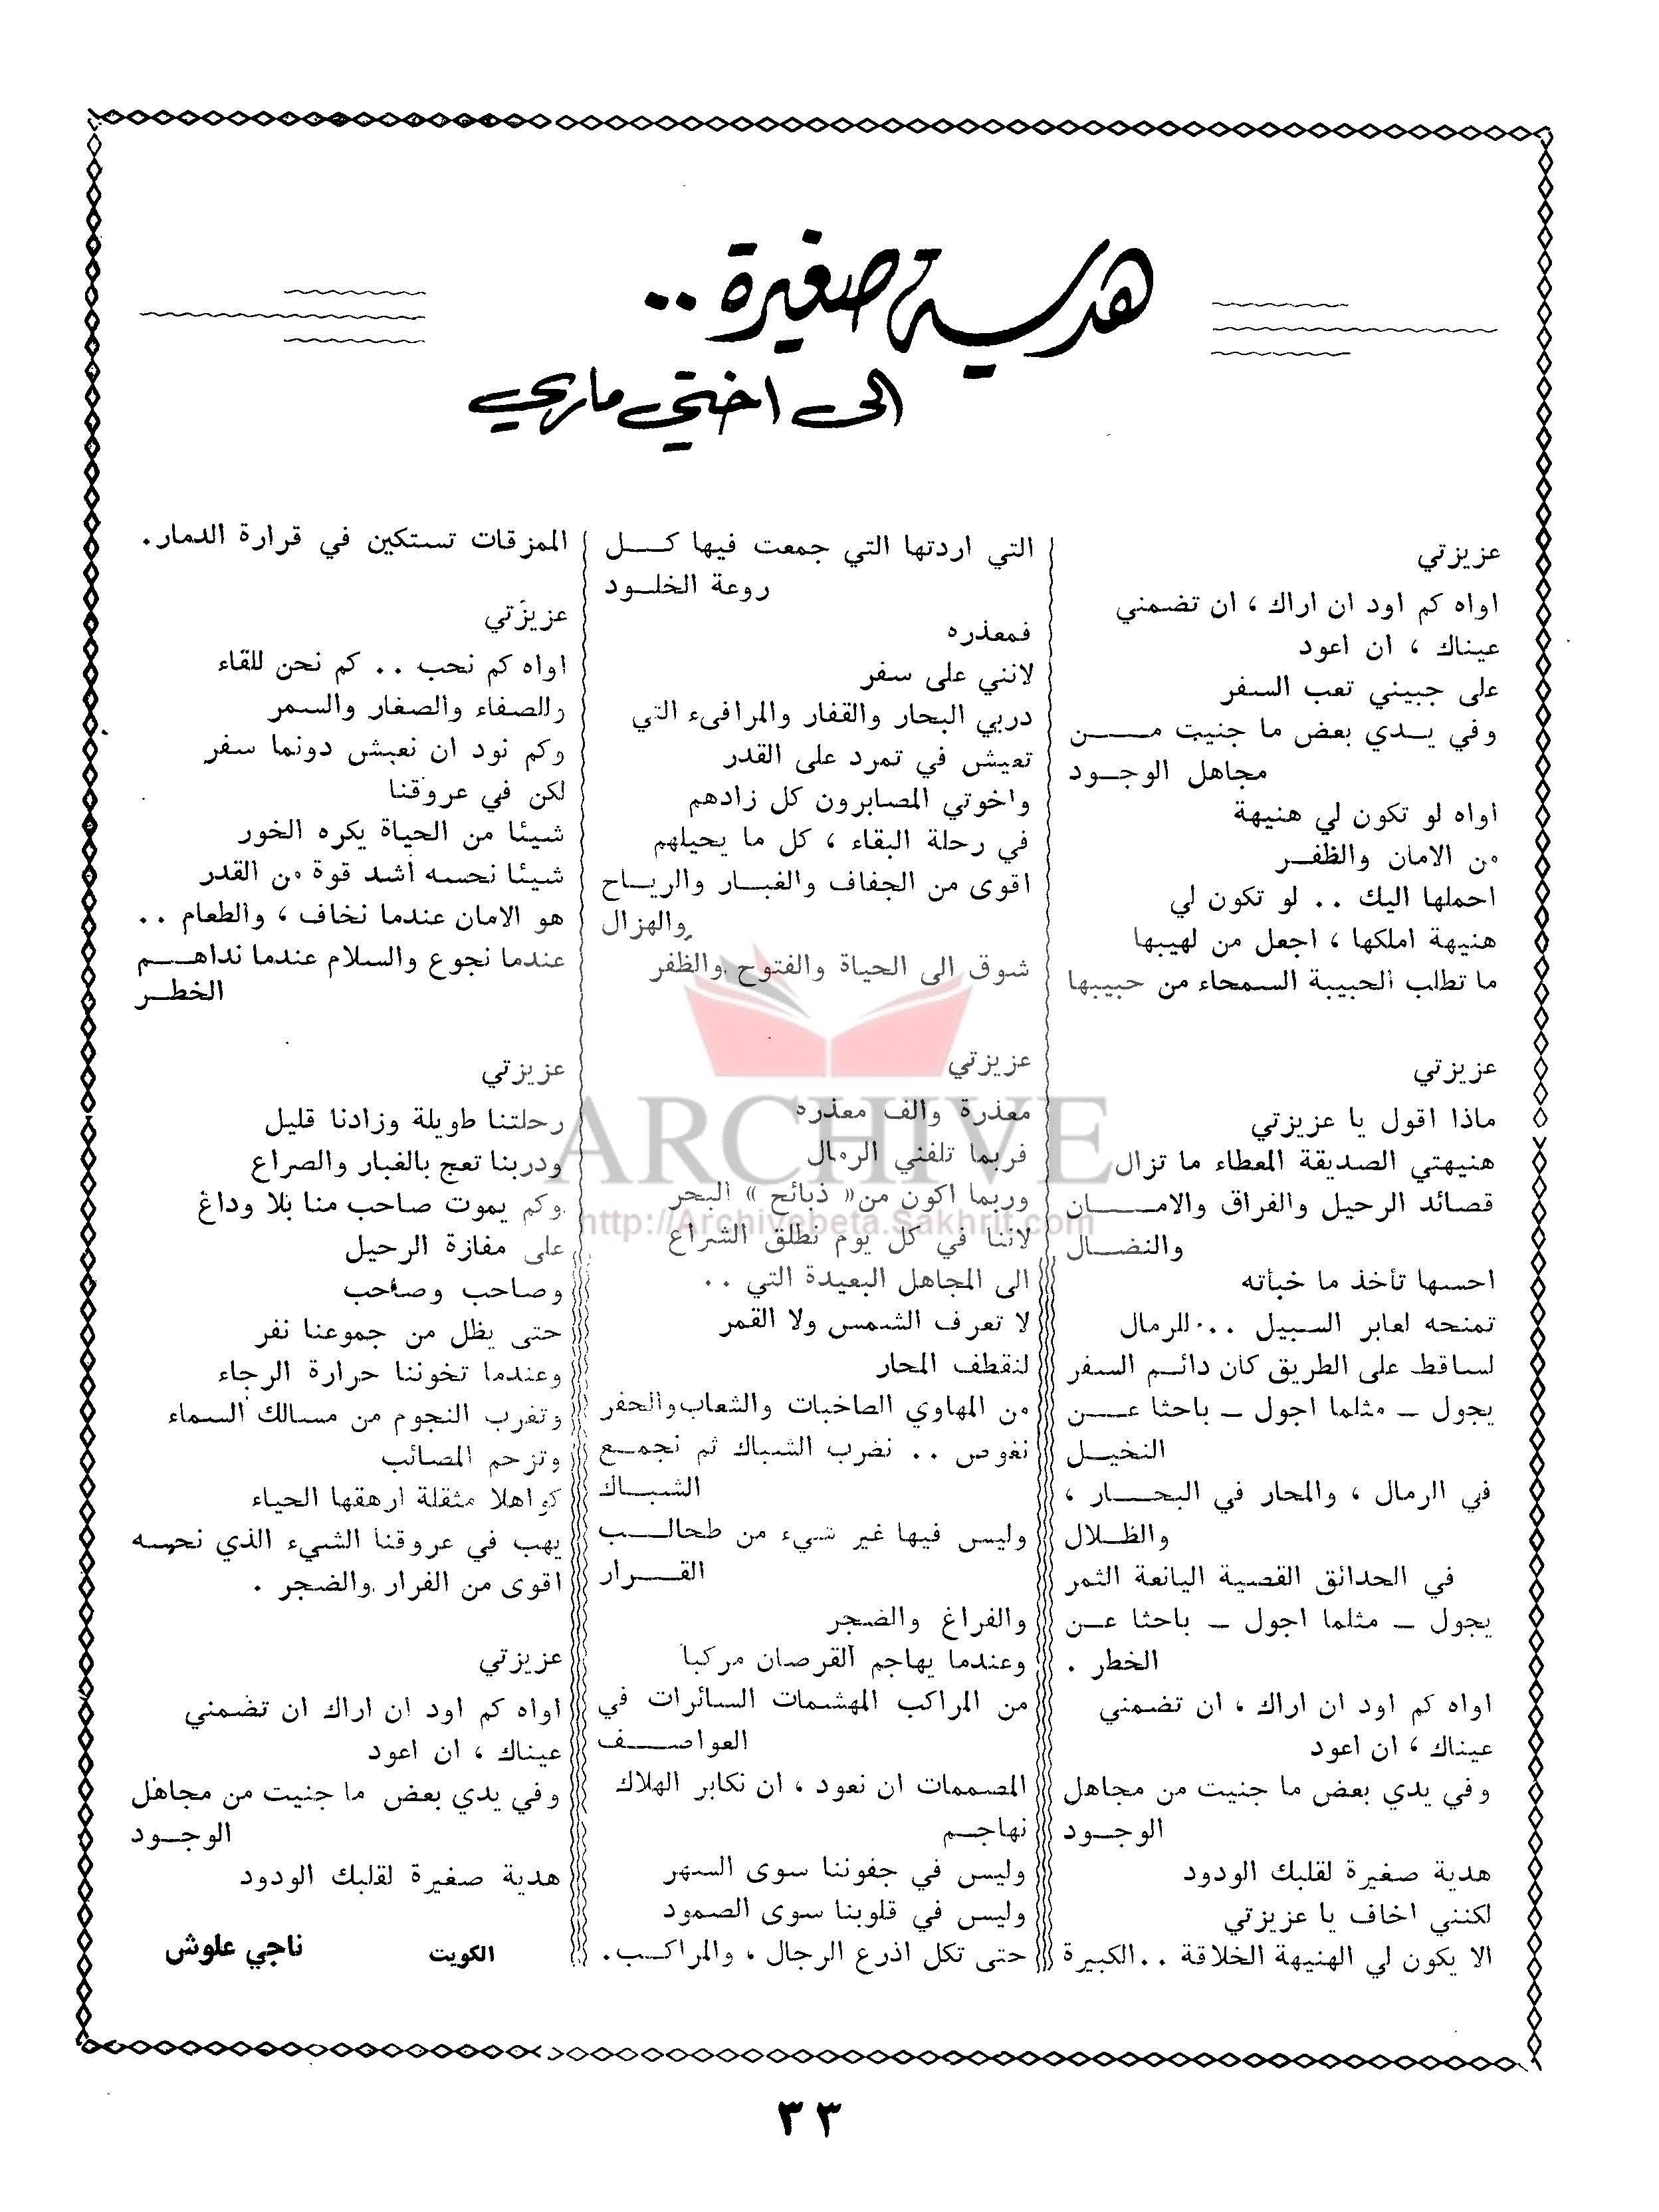 هدية صغيرة ..
الى اختي ماري
عزيزتي
اواه كم اود ان اراك ، ان تضمني
عيناك ، ان اعود
على جبيني تعب السفر
وفي يــدي بعض ما جنيت مــــن
مجاهل الوجــود
اواه لو تكون لي هنيهة
من الامان والظفــر
احملها اليك .. لو تكون لي
هنيهة املكها ، اجعل من لهيبها
ما تطلب الحبيبة السمحاء من حبيبها
عزيزتي
ماذا اقول يا عزيزتي
هنيهتي الصديقة المعطاء ما تزال
قصائد الرحيل والفراق والامــــان
والنضــال
احسها تأخذ ما خبأته
تمنحه لعابر السبيل .. للرمال
لساقط على الطريق كان دائــم السفر
يجول ــ مثلما اجول ــ باحثا عــــن
النخيــل
في الرمال ، والمحار في البحــار ،
والظــلال
في الحدائق القصية اليانعة الثمر
يجول ــ مثلما اجول ــ باحثا عــن
الخطر .
اواه كم اود ان اراك ، ان تضمني
عيناك ، ان اعود
وفي يدي بعض ما جنيت من مجاهل
الوجــود
هدية صغيرة لقلبك الودود
لكنني اخاف يا عزيزتي
الا يكون لي الهنيهة الخلاقة ..الكبيرة
التي اردتها التي جمعت فيها كــــل
روعة الخلــود
فمعذره
لانني على سفر
دربي البحار والقفار والمرافىء التي
تعيش في تمرد على القدر
واخوتي المصابرون كل زادهم
في رحلة البقاء ، كل ما يحيلهم
اقوى من الجفاف والغبــار والريــاح
والهزال
شوق الى الحياة والفتوح والظفر
عزيزتي
معذرة والف معذره
فربما تلفني الرمال
وربما اكون من« ذبائح » البحر
لاننا في كل يوم نطلق الشراع
الى المجاهل البعيدة التي ..
لا تعرف الشمس ولا القمر
لنقطف المحار
من المهاوي الصاخبات والشعاب والحفر
نغوص .. نضرب الشباك ثم نجمــع
الشبــاك
وليس فيها غير شيء من طحالــــب
القــــرار
والفراغ والضجر
وعندما يهاجم القرصان مركبا
من المراكب المهشمات السائرات في
العواصــــف
المصممات ان نعود ، ان نكابر الهلاك
نهاجــم
وليس في جفوننا سوى السهر
وليس في قلوبنا سوى الصمود
حتى تكل اذرع الرجال ، والمراكــب.
الممزقات تستكين في قرارة الدمار.
عزيزتي
اواه كم نحب .. كم نحن للقاء
وللصفاء والصغار والسمر
وكم نود ان نعيش دونما سفر
لكن في عروقنا
شيئا من الحياة يكره الخور
شيئا نحسه اشد قوة من القدر
هو الامان عندما نخاف ، والطعام ..
عندما نجوع والسلام عندما نداهــــم
الخطــر
عزيزتي
رحلتنا طويلة وزادنا قليل
ودربنا تعج بالغبار والصراع
وكم يموت صاحب منا بلا وداع
على مفازة الرحيل
وصاحب وصاحب
حتى يظل من جموعنا نفر
وعندما تخوننا حرارة الرجاء
وتغرب النجوم من مسالك السماء
وتزحم المصائب
كواهلا مثقلة ارهقها الحياء
يهب في عروقنا الشيء الذي نحسه
اقوى من الفرار والضجر .
عزيزتي
اواه كم اود ان اراك ان تضمني
عيناك ، ان اعود
وفي يدي بعض ما جنيت من مجاهل
الوجــود
هدية صغيرة لقلبك الودود
الكويت ناجي علوش
ARCHIVE
http://Archivebeta.Sakhrit.com
٣٣